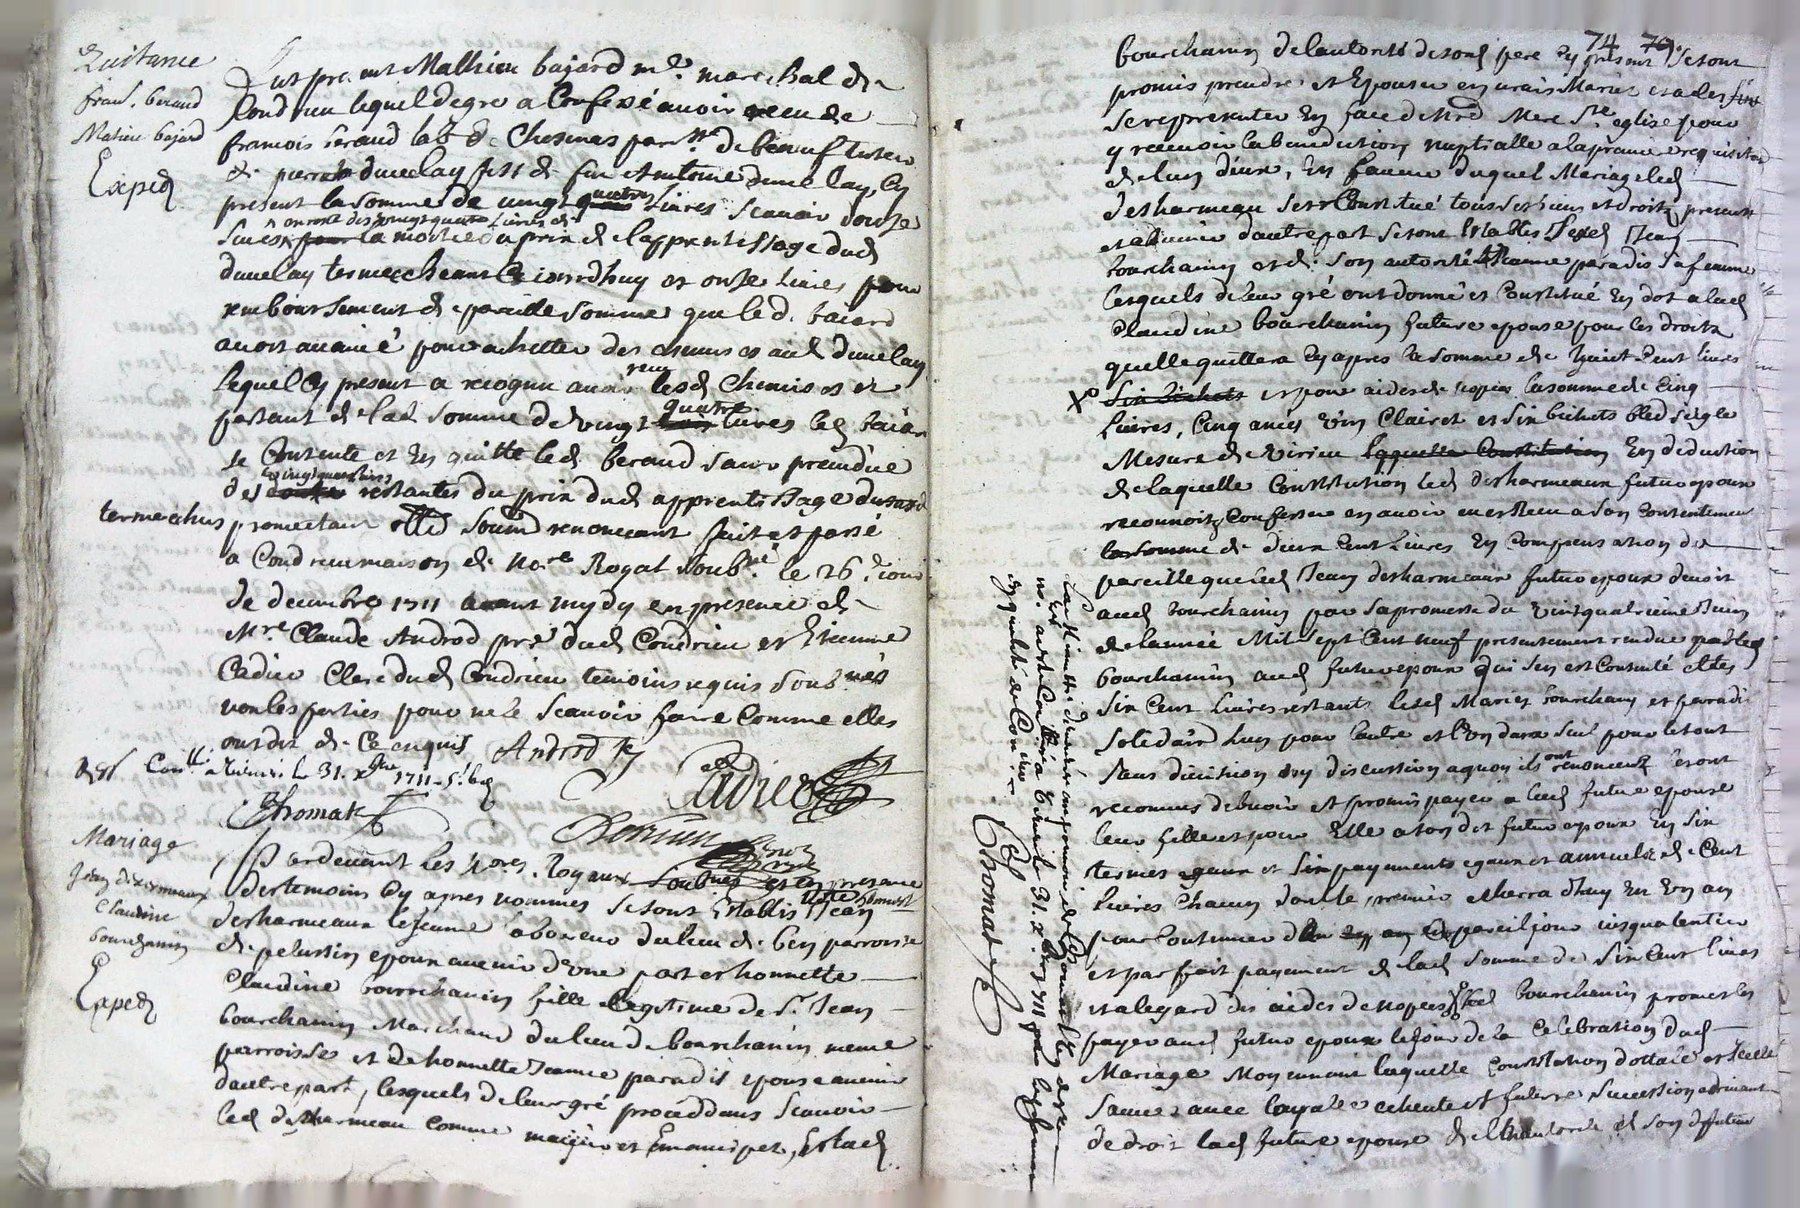 Quittance
frans. beraud
Mathieu bajard
Exped
fut present Mathieu bajard me. marechal de
Condrieu lequel de gre a Confessé avoir receu de
francois beraud lab. de Chesnas parr. de beuf tuteur
de pierre dunelay fils de feu Antoine dunelay, cy
present la somme de vingt quatre livres scavoir douze
livres en reste des vingt quatre livres de
pour la moitié du prix de l'apprentissage dud
dunelay terme echeant Ce iourdhuy et onze livres pour
remboursement de pareille somme que led. baiard
avoit avancé pour achetter des chemises aud dunelay
lequel cy present a recognu avoir receu lesd Chemises et
partant de lad somme de vingt quatre livres led baiard
se Contente et en quitte led beraud sans preiudice
des vingt quatre livres restantes du prix dud apprentissage dususd
terme echus promettant obl. soumd renonceant fait et passé
a Condrieu maison de No.re Royal soub.né le 26.e iour
de decembre 1711 avant mydy en presence de
M.re Claude Androd pre. dud Condrieu et Etienne
Cadier Clerc dud Condrieu temoins requis soub.nés
non les parties pour ne le scavoir faire Comme elles
ont dit de Ce enquis Androd
Cadier
Con.llé a Virieu le 31. xbre 1711 - 5.s 6d
Thomas
Mariage
Jean desharmeaux
Claudine
bourchanin
Exped
Pardevant les No.res Royaux soubnés et en presence
des temoins cy apres nommes se sont Establis Jean
desharmeaux le jeune laboureur du lieu de ben parroisse
de pelussin epoux avenir d'une part et honnette
Claudine bourchanin fille legitime de S.r Jean
bourchanin Marchand du lieu de bourchanin meme
parroisse et de honnette Jeanne paradis epouse avenir
d'autre part, lesquels de leur gré proceddans scavoir
led desharmeau comme maijeur et Emancipez, Et lad
74 70
bourchanin de l'autorité de sond pere cy present se sont
promis prendre et Epouser en vrais Mariez et a les fins
se representer En face de N.re Mere S.te eglise pour
y recevoir la benediction nuptialle a la premiere requisition
de l'un d'eux, En faveur duquel Mariage led
desharmeau s'est Constitué tous ses biens et droits presents
et avenir d'autre part se sont Establis led Jean
bourchanin et de son autorité Jeanne paradis sa femme
lesquels de leur gré ont donné et Constitué En dot a lad
Claudine bourchanin future epouse pour les droits
quelle quittera cy apres la somme de huict Cent livres
six bichets et pour aides de nopces la somme de Cinq
livres, Cinq anées vin Clairet et six bichets bled seigle
Mesure de Virieu laquelle Constitution En deduction
de laquelle Constitution led desharmeaux futur epoux
reconnoit Confesser en avoir eu et Receu a son Contentement
la somme de deux Cent livres En Compensation de
pareille que led Jean desharmeaux futur epoux devoit
aud bourchanin par sa promesse du vint quatrieme Juin
de l'année Mil sept Cent neuf presentement rendue par led
bourchanin aud futur epoux qui s'en est Contenté et les
six Cent livres restants lesd Mariez bourchanin et paradis
solidairement l'un pour l'autre et l'un d'eux seul pour le tout
sans division ny discussion a quoy ils ont renoncez seront
reconnus debvoir et promis payer a lad future epouse
leur fille et pour Elle a son dit futur epoux En six
termes egaux et six payements egaux et annuels de Cent
livres Chacun dont le premier echerra d'huy En un an
pour continuer a pareil jour iusqu'a l'entier
et parfait payement de lad somme de six Cent livres
et a l'egard des aides de nopces led bourchanin promet les
payer aud futur epoux le jour de la Celebration dud
Mariage Moyennant laquelle Constitution dottale et Icelle
sauve avec loyale echeute et future succession advenant
de droit lad future epouse de l'authorité de son d futur
Thomas